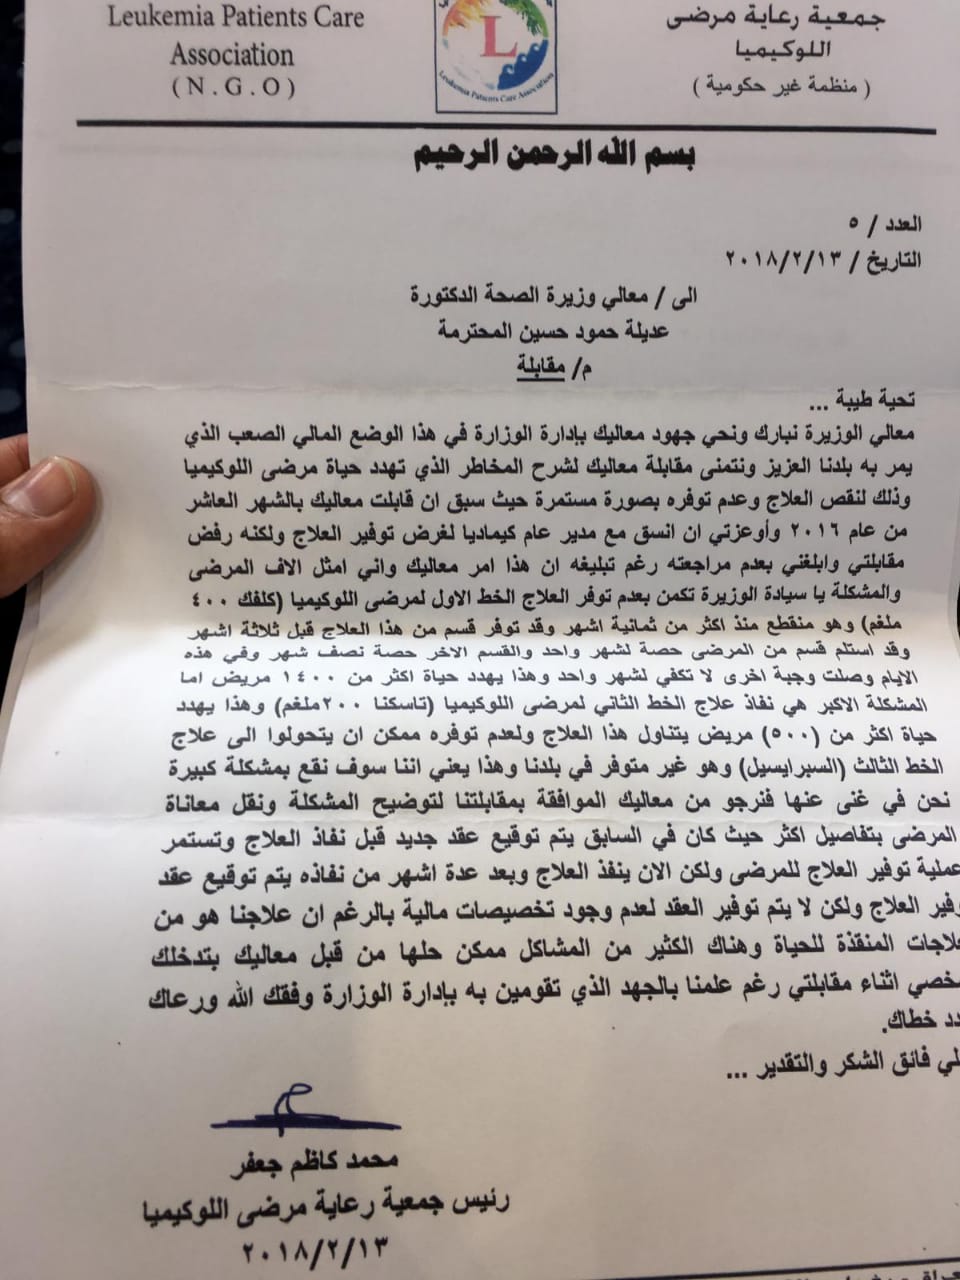 Leukemia Patients Care
Association
(N.G.O)
جمعية رعاية مرضى
اللوكيميا
( منظمة غير حكومية )
L
Leukemia Patients Care Association
بسم الله الرحمن الرحيم
العدد / ٥
التاريخ / ٢٠١٨/٢/١٣
الى / معالي وزيرة الصحة الدكتورة
عديلة حمود حسين المحترمة
م/ مقابلة
تحية طيبة ...
معالي الوزيرة نبارك ونحي جهود معاليك بإدارة الوزارة في هذا الوضع المالي الصعب الذي
يمر به بلدنا العزيز ونتمنى مقابلة معاليك لشرح المخاطر الذي تهدد حياة مرضى اللوكيميا
وذلك لنقص العلاج وعدم توفره بصورة مستمرة حيث سبق ان قابلت معاليك بالشهر العاشر
من عام ٢٠١٦ وأوعزتي ان انسق مع مدير عام كيماديا لغرض توفير العلاج ولكنه رفض
مقابلتي وابلغني بعدم مراجعته رغم تبليغه ان هذا امر معاليك واني امثل الاف المرضى
والمشكلة يا سيادة الوزيرة تكمن بعدم توفر العلاج الخط الاول لمرضى اللوكيميا (كلفك ٤٠٠
ملغم) وهو منقطع منذ اكثر من ثمانية اشهر وقد توفر قسم من هذا العلاج قبل ثلاثة اشهر
وقد استلم قسم من المرضى حصة لشهر واحد والقسم الاخر حصة نصف شهر وفي هذه
الايام وصلت وجبة اخرى لا تكفي لشهر واحد وهذا يهدد حياة اكثر من ١٤٠٠ مريض اما
المشكلة الاكبر هي نفاذ علاج الخط الثاني لمرضى اللوكيميا (تاسكنا ٢٠٠ملغم) وهذا يهدد
حياة اكثر من (٥٠٠) مريض يتناول هذا العلاج ولعدم توفره ممكن ان يتحولوا الى علاج
الخط الثالث (السبرايسيل) وهو غير متوفر في بلدنا وهذا يعني اننا سوف نقع بمشكلة كبيرة
نحن في غنى عنها فنرجو من معاليك الموافقة بمقابلتنا لتوضيح المشكلة ونقل معاناة
المرضى بتفاصيل اكثر حيث كان في السابق يتم توقيع عقد جديد قبل نفاذ العلاج وتستمر
عملية توفير العلاج للمرضى ولكن الان ينفذ العلاج وبعد عدة اشهر من نفاذه يتم توقيع عقد
وفير العلاج ولكن لا يتم توفير العقد لعدم وجود تخصيصات مالية بالرغم ان علاجنا هو من
علاجات المنقذة للحياة وهناك الكثير من المشاكل ممكن حلها من قبل معاليك بتدخلك
خصي اثناء مقابلتي رغم علمنا بالجهد الذي تقومين به بإدارة الوزارة وفقك الله ورعاك
دد خطاك.
لي فائق الشكر والتقدير ...
محمد كاظم جعفر
رئيس جمعية رعاية مرضى اللوكيميا
٢٠١٨/٢/١٣